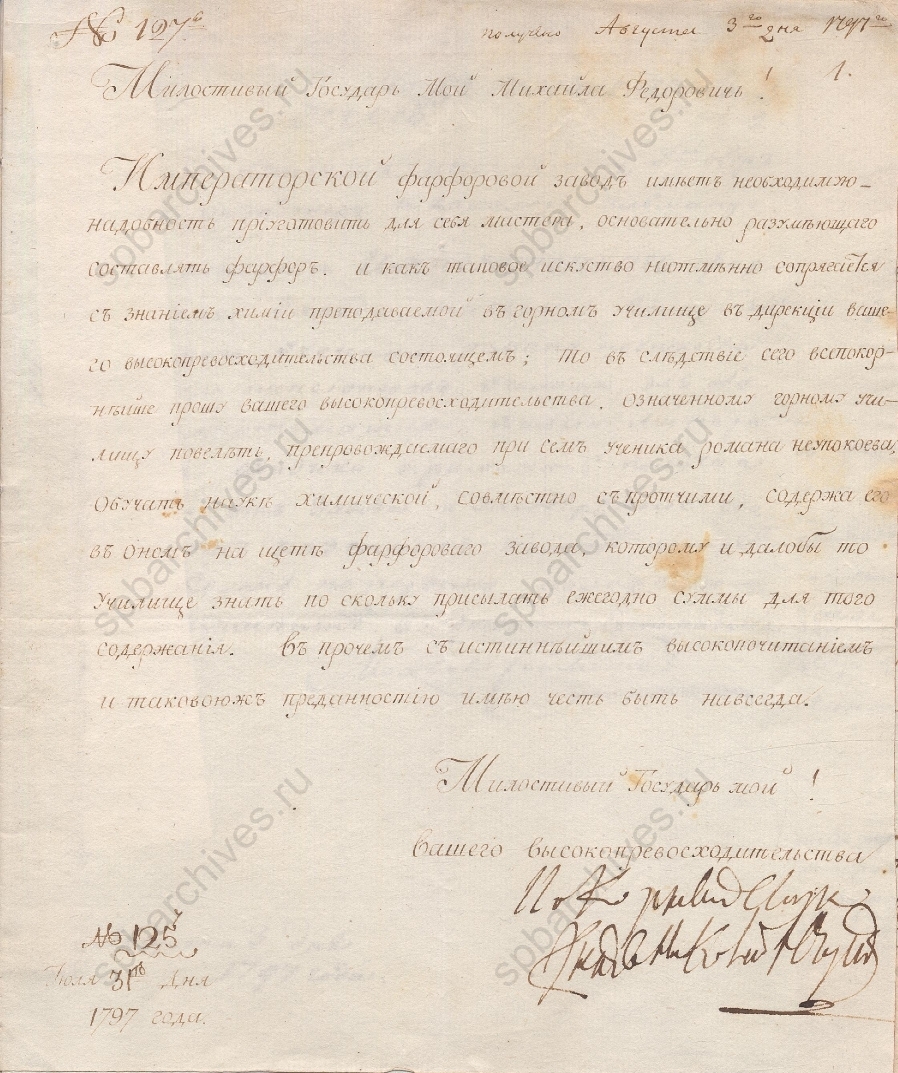 № 197е получено Августа 3го дня 1797го
1.
Милостивый Государь Мой Михайла Федоровичь!
Императорской фарфоровой заводъ имѣетъ необходимую
надобность пріуготовить для себя мастера, основательно разумѣющаго
составлять фарфоръ. и какъ таковое искуство неотмѣнно сопрягается
съ знаніемъ химіи преподаваемой въ горномъ училище въ дирекціи ваше-
го высокопревосходительства состоящемъ; то въ слѣдствіе сего всепокор-
нѣйше прошу вашего высокопревосходительства, означенному горному учи-
лищу повелѣть, препровождаемаго при семъ ученика романа неупокоева,
обучать наукѣ химической, совмѣстно съ протчими, содержа его
въ ономъ на щетѣ фарфороваго завода, которому и далобы то
училище знать по скольку присылать ежегодно суммы для того
содержанія. Въ прочемъ съ истиннѣйшимъ высокопочитаніемъ
и таковоюжъ преданностію имѣю честь быть навсегда.
Милостивый Государь мой!
Вашего высокопревосходительства
покорный слуга
Князь Николай Юсупов
№ 125й
Іюля 31го дня
1797 года.
spbarchives.ru
spbarchives.ru
spbarchives.ru
spbarchives.ru
spbarchives.ru
spbarchives.ru